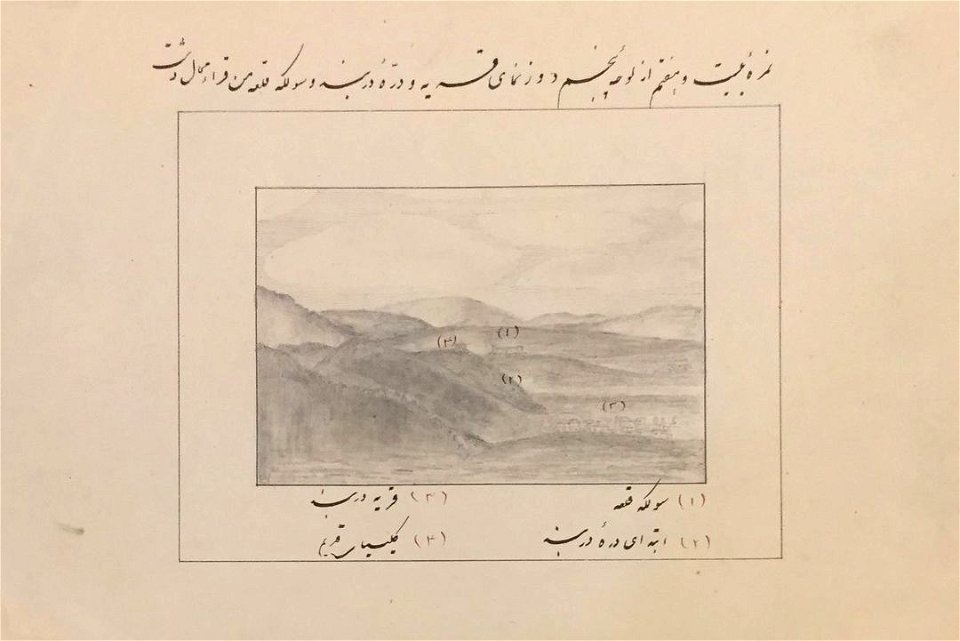 نمرهٔ بیست و هفتم از لوحهٔ پنجم دورنمای قریه و درّهٔ دربند و سولکه قلعه من قراء محال دشت
(۱) (۴)
(۲)
(۳)
(۱) سولکه قلعه (۳) قریه دربند
(۲) ابتدای درهٔ دربند (۴) کلیسیای قدیم